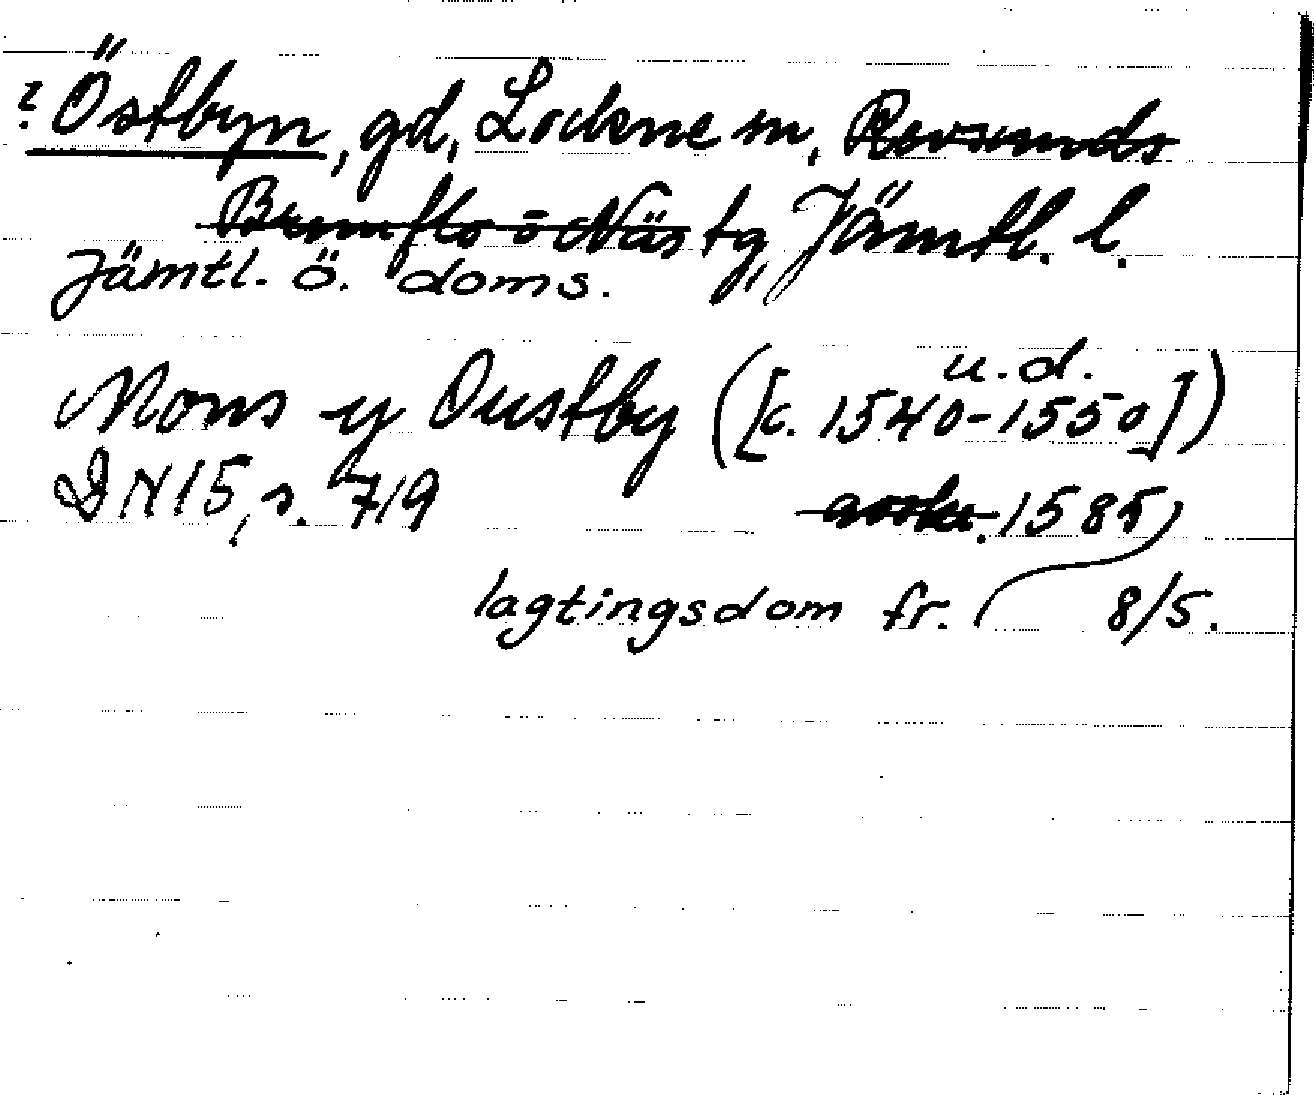 ? Östbyn, gd, Lockne sn, Revsunds
Brunflo o Näs tg, Jämtl. l.
Jämtl. ö. doms.
Mons y Oustby ([c. 1540-1550])
u.d.
DN 15, s. 719
avskr. 1585
lagtingsdom fr. 8/5.